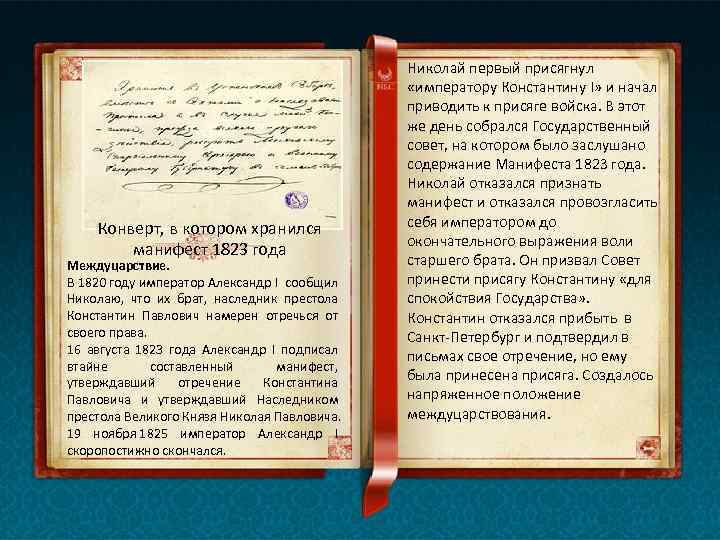 Хранить в
до
Конверт, в котором хранился
манифест 1823 года
Междуцарствие.
В 1820 году император Александр I сообщил
Николаю, что их брат, наследник престола
Константин Павлович намерен отречься от
своего права.
16 августа 1823 года Александр I подписал
втайне составленный манифест,
утверждавший отречение Константина
Павловича и утверждавший Наследником
престола Великого Князя Николая Павловича.
19 ноября 1825 император Александр I
скоропостижно скончался.
Николай первый присягнул
«императору Константину I» и начал
приводить к присяге войска. В этот
же день собрался Государственный
совет, на котором было заслушано
содержание Манифеста 1823 года.
Николай отказался признать
манифест и отказался провозгласить
себя императором до
окончательного выражения воли
старшего брата. Он призвал Совет
принести присягу Константину «для
спокойствия Государства» .
Константин отказался прибыть в
Санкт-Петербург и подтвердил в
письмах свое отречение, но ему
была принесена присяга. Создалось
напряженное положение
междуцарствования.